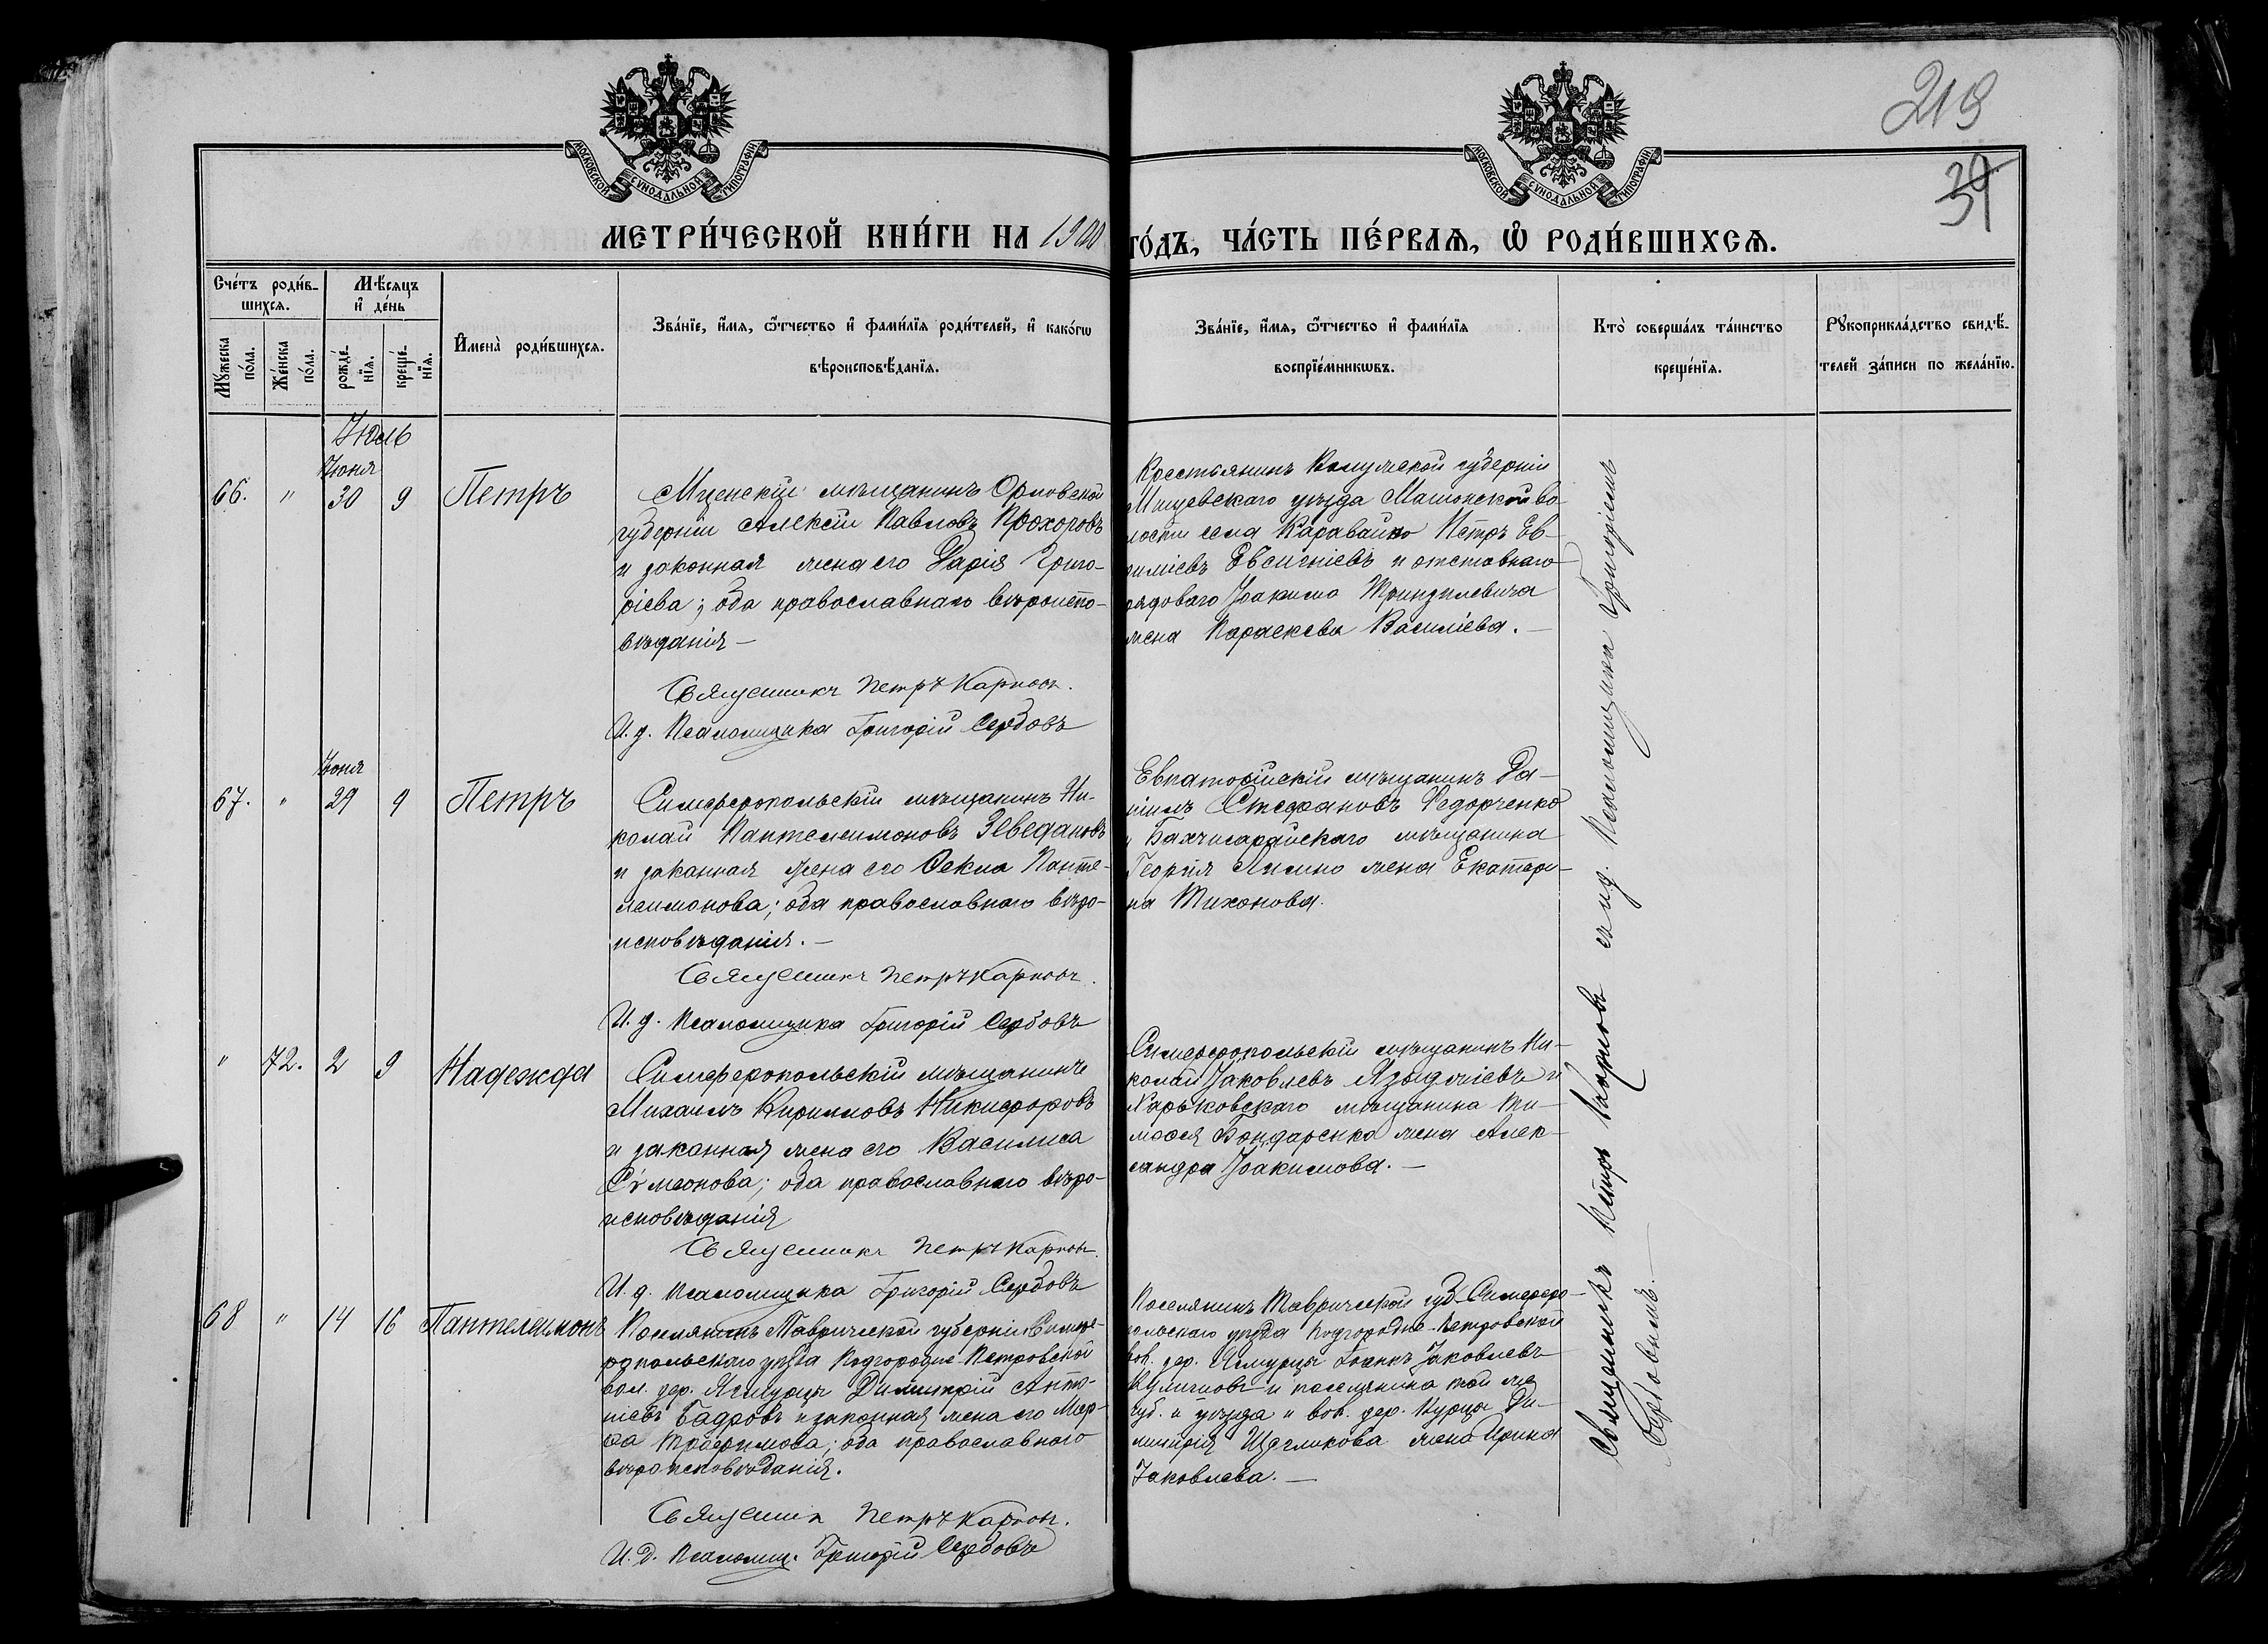 219
39
МОСКОВСКОЙ СѴНОДАЛЬНОЙ ТИПОГРАФІИ
МОСКОВСКОЙ СѴНОДАЛЬНОЙ ТИПОГРАФІИ
МЕТРИ́ЧЕСКОЙ КНИ́ГИ НА 1900
ГО́ДЪ, ЧА́СТЬ ПЕ́РВАѦ, Ѽ РОДИ́ВШИХСѦ.
Сче́тъ роди́в-
шихсѧ.
Мѣ́сѧцъ
и҆ де́нь
Мꙋ́жеска
по́ла.
Же́нска
по́ла.
рожде́-
нїѧ.
креще́-
нїѧ.
И҆мена̀ роди́вшихсѧ.
Зва́нїе, и҆́мѧ, ѻ҆́тчество и҆ фами́лїѧ роди́телей, и҆ како́гѡ
вѣроисповѣ́данїѧ.
Зва́нїе, и҆́мѧ, ѻ҆́тчество и҆ фами́лїѧ
воспрїе́мникѡвъ.
Кто̀ соверша́лъ та́инство
креще́нїѧ.
Рꙋкоприкла́дство свидѣ́-
телей за́писи по жела́нїю.
Іюль
Іюня
66. " 30 9 Петръ
Мценскій мѣщанинъ Орловской
губерніи Алексій Павловъ Прохоровъ
и законная жена его Дарія Григо-
ріева; оба православнаго вѣроиспо-
вѣданія —
Священникъ Петръ Карповъ.
И. д. Псаломщика Григорій Сербовъ
Крестьянинъ Калужской губерніи
Мищевскаго уѣзда Машонской во-
лости села Каравайко Петръ Ев-
иміевъ Евсигніевъ и отставнаго
рядоваго Іоакима Триндилевича
жена Параскева Василіева. —
Іюня
67. " 29 9 Петръ
Симферопольскій мѣщанинъ Ни-
колай Пантелеимоновъ Зеведановъ
и законная жена его Ѳекла Панте-
леимонова; оба православнаго вѣро-
исповѣданія. —
Священникъ Петръ Карповъ.
И. д. Псаломщика Григорій Сербовъ
Евпаторійскій мѣщанинъ Да-
ніилъ Стефановъ Ѳедорченко
и Бахчисарайскаго мѣщанина
Георгія Лисино жена Екатери-
на Тихонова.
" 72. 2 9 Надежда
Симферопольскій мѣщанинъ
Михаилъ Кирилловъ Никифоровъ
и законная жена его Василиса
Сѵмеонова; оба православнаго вѣро-
исповѣданія
Священникъ Петръ Карповъ.
И. д. Псаломщика Григорій Сербовъ
Симферопольскій мѣщанинъ Ни-
колай Іаковлевъ Языджіевъ и
Харьковскаго мѣщанина Ти-
моѳея Бондаренко жена Алек-
сандра Іоакимова. —
68 " 14 16 Пантелеимонъ
Поселянинъ Таврической губерніи Симфе-
ропольскаго уѣзда Подгородне-Петровской
вол. дер. Димитрій Анто-
ніевъ Бадровъ и законная жена его Мар-
ѳа Трофимова; оба православнаго
вѣроисповѣданія.
Священник Петръ Карповъ.
И. Д. Псаломщ. Григорій Сербовъ
Поселянинъ Таврической губ. Симферо-
польскаго уѣзда Подгородне-Петровской
вол. дер. Іоаннъ Іаковлевъ
Куличновъ и поселянина той же
губ. и уѣзда и вол. дер. Курца Ди-
митрія Щегликова жена Ирина
Іаковлева. —
Священникъ Петръ Карповъ съ и.д. Псаломщика Григоріемъ
Сербовымъ. —